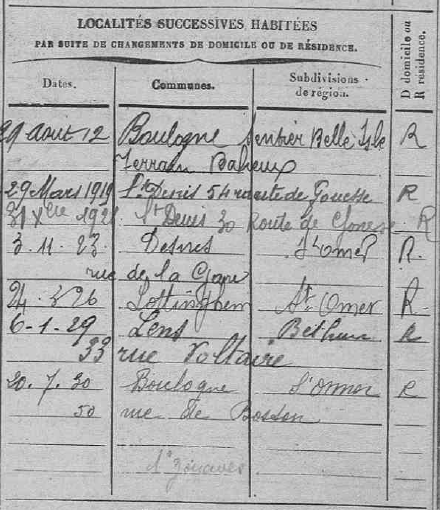 LOCALITÉS SUCCESSIVES HABITÉES
PAR SUITE DE CHANGEMENTS DE DOMICILE OU DE RÉSIDENCE.
Dates. Communes. Subdivisions de région. D domicile ou R résidence.
29 Aout 12 Boulogne Sentier Belle Isle R
Terrain Bayeux
29 Mars 1919 St Denis 54 route de Gonesse R
31 Xbre 1921 St Denis 30 Route de Gonesse R
3. 11. 23 Desvres St Omer R.
rue de la Gare
24. 3 26 Lottinghem St Omer R
6-1-29 Lens Béthune R
33 rue Voltaire
20. 7. 30 Boulogne St Omer R
50 rue de